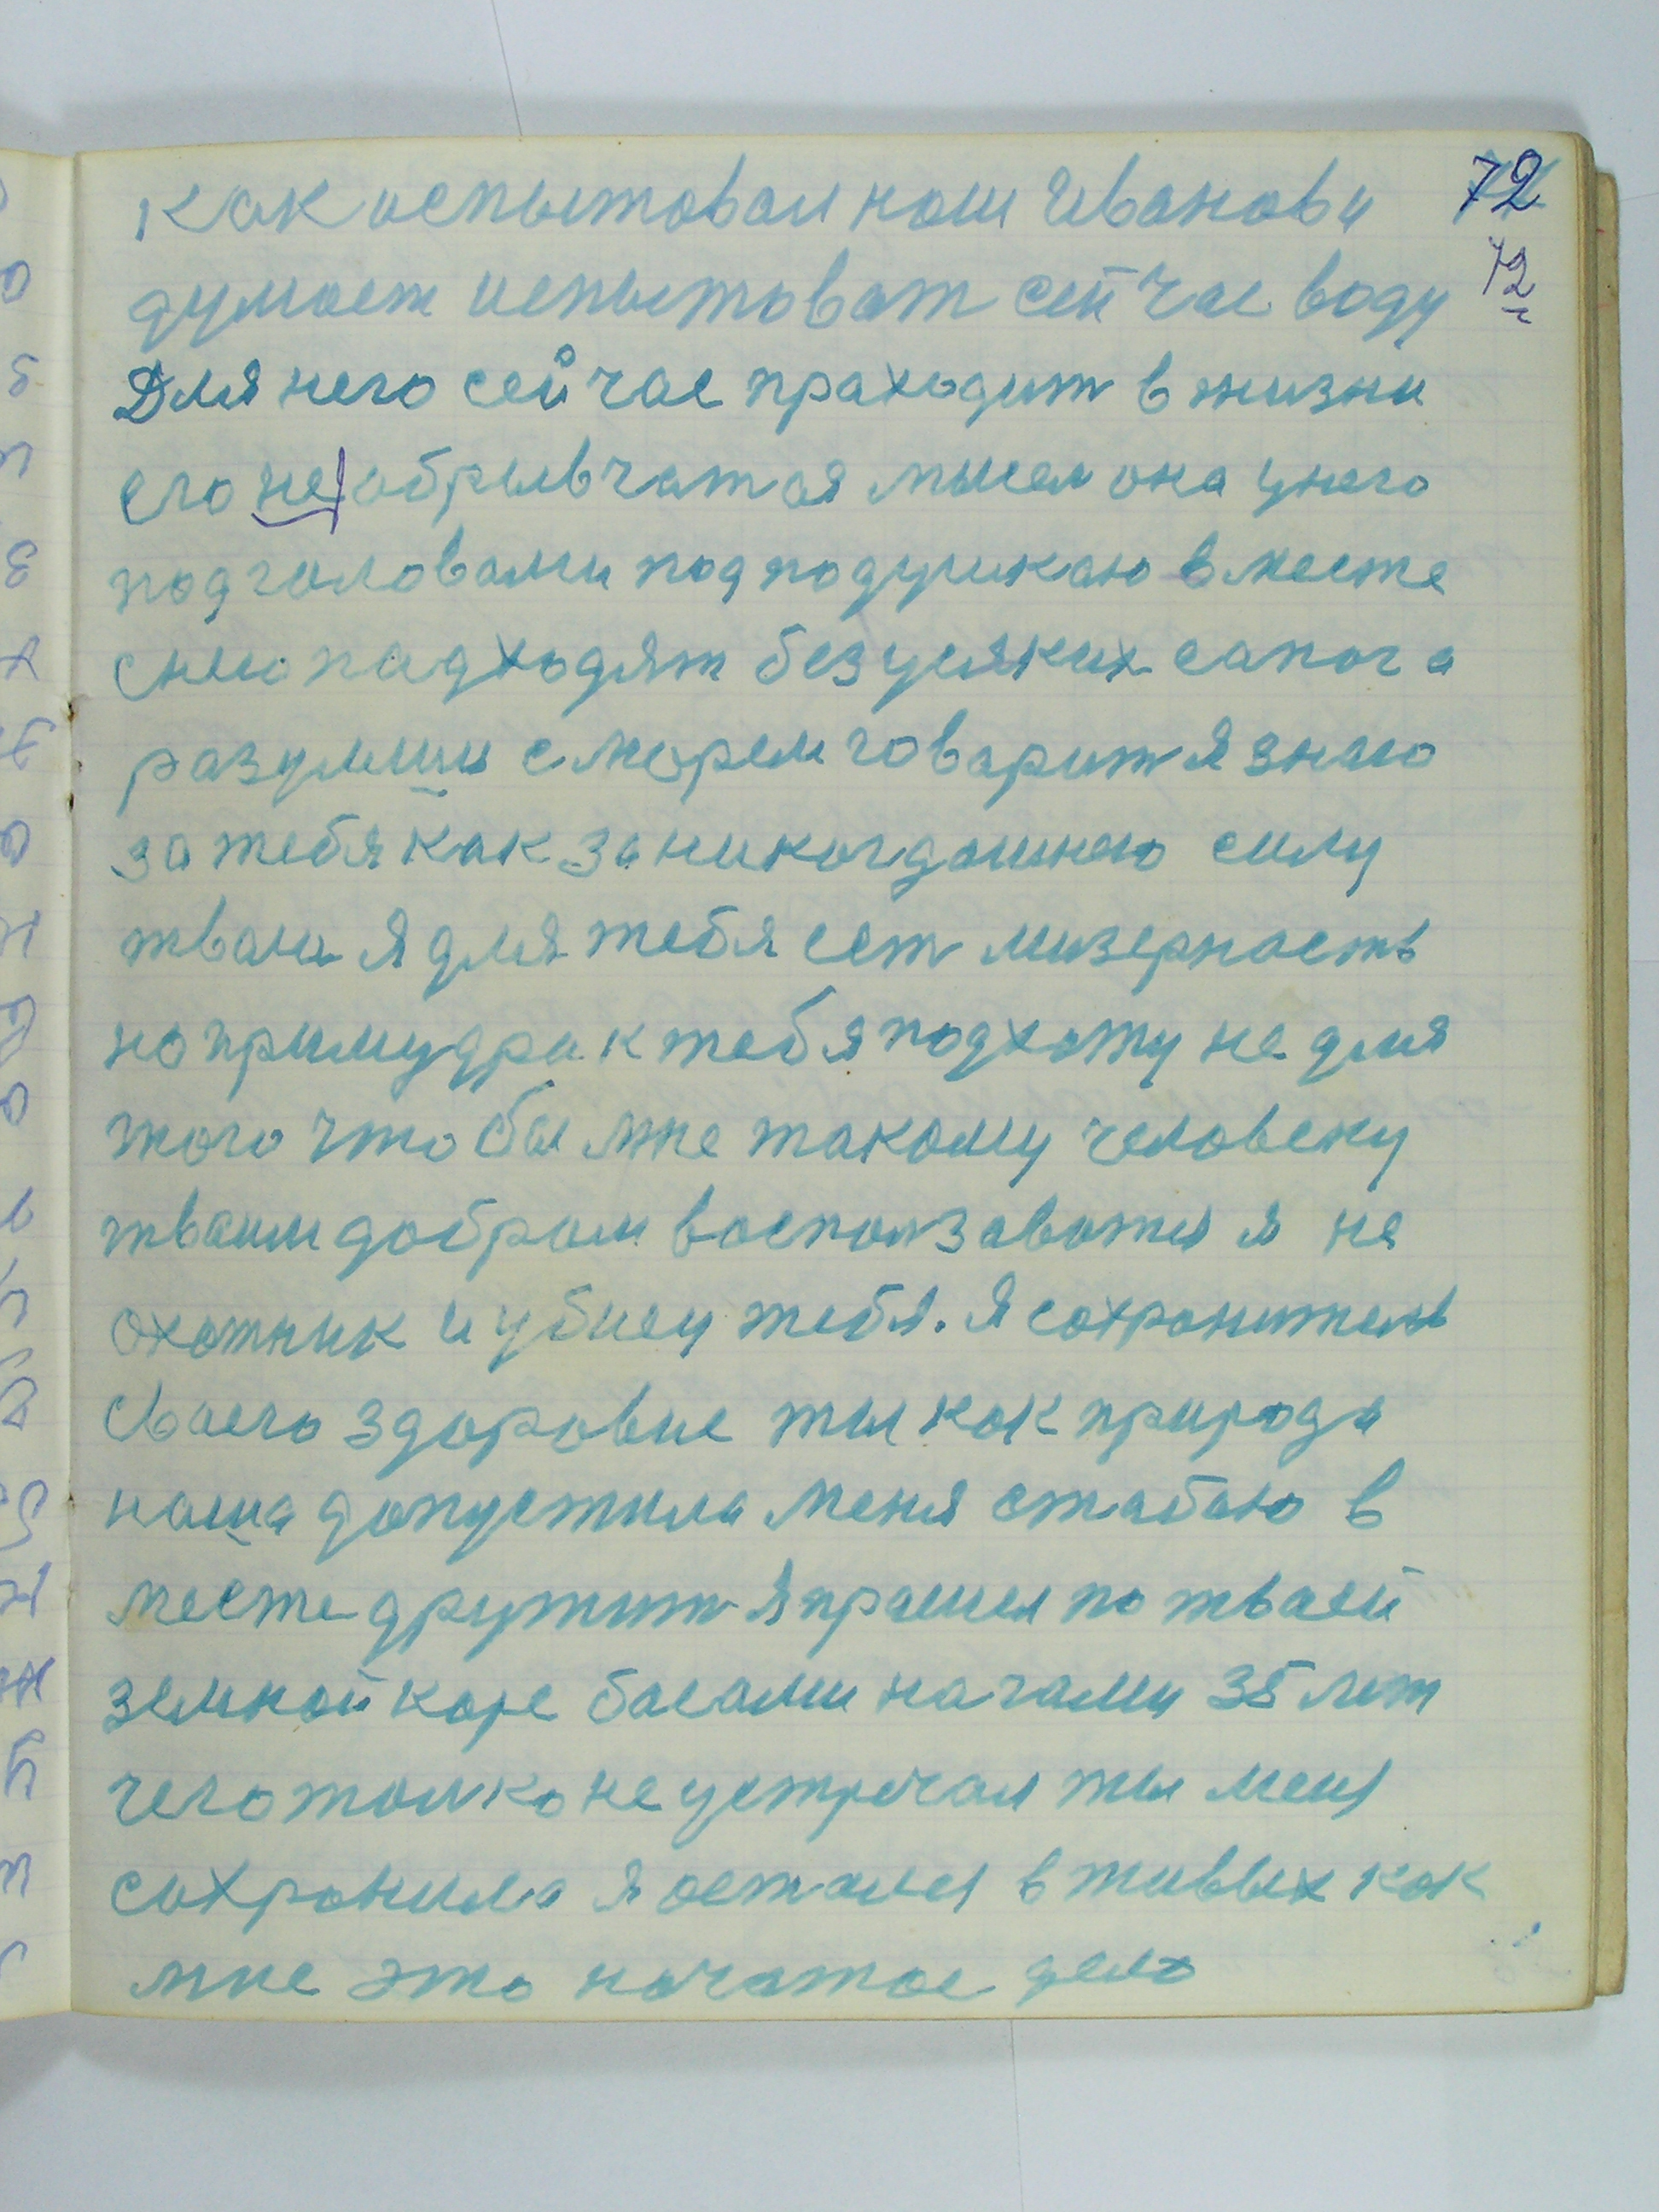 как испытовал наш Иванов и
72
думает испытоват сейчас воду
72
Для него сейчас праходит в жизни
его не обрывчатая мысел она унего
подголовами под подушкаю вместе
снею падходят без усяких сапог а
разумши смарем говарит я знаю
за тебя как за никогдашнею силу
тваю я для тебя сет мизерность
но примудра к тебя подхожу не для
того что бы мне такому человеку
тваим добром воспользаватся я не
охотник и убиец тебя. Я сохронитель
сваего здоровие ты как природа
наша допустила меня стабою в
месте дружит я прашел по тваей
земной каре басами нагами 35 лет
чего толко не устречал ты меня
сохронила я остался в живых как
мне это начатое дело